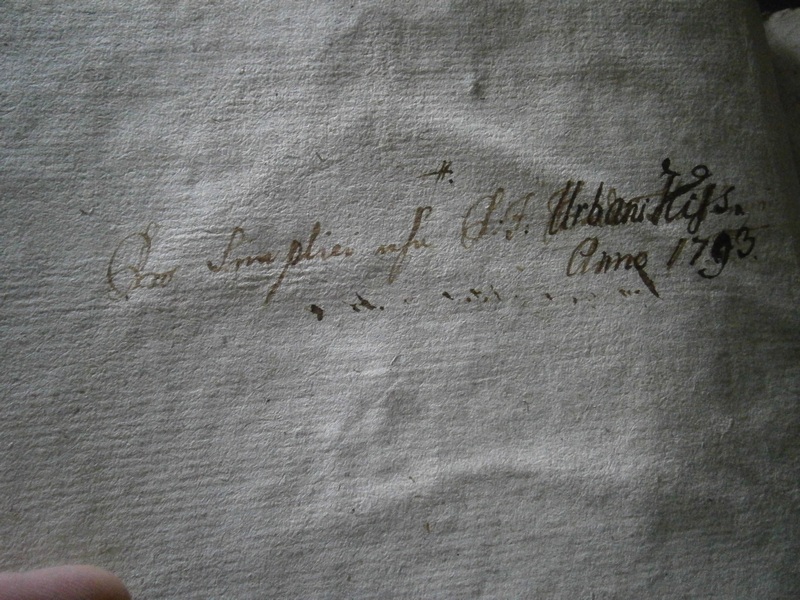 Pro Simplici usu P. F. Urbani Kiss.
Anno 1793.